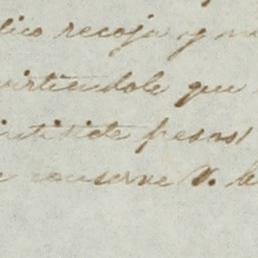 lico recoja y
virtiendole que
intisiete pesos
conserve V.